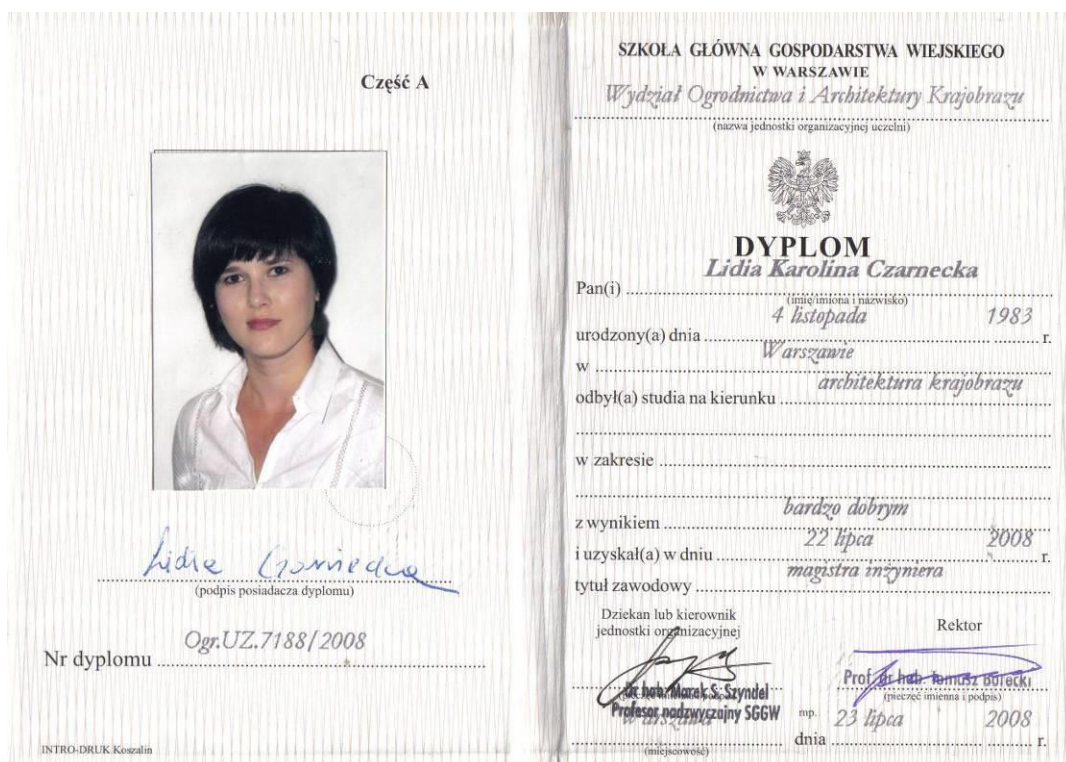 Część A
Lidia Czarnecka
(podpis posiadacza dyplomu)
Nr dyplomu Ogr.UZ.7188/2008
INTRO-DRUK Koszalin
SZKOŁA GŁÓWNA GOSPODARSTWA WIEJSKIEGO
W WARSZAWIE
Wydział Ogrodnictwa i Architektury Krajobrazu
(nazwa jednostki organizacyjnej uczelni)
DYPLOM
Pan(i) Lidia Karolina Czarnecka
(imię/imiona i nazwisko)
urodzony(a) dnia 4 listopada 1983 r.
w Warszawie
odbył(a) studia na kierunku architektura krajobrazu
w zakresie
z wynikiem bardzo dobrym
i uzyskał(a) w dniu 22 lipca 2008 r.
tytuł zawodowy magistra inżyniera
Dziekan lub kierownik
jednostki organizacyjnej
Dr hab. Marek S. Szyndel
Profesor nadzwyczajny SGGW
Warszawa
(miejscowość)
Rektor
Prof. dr hab. Tomasz Borecki
(pieczęć imienna i podpis)
mp.
dnia 23 lipca 2008 r.